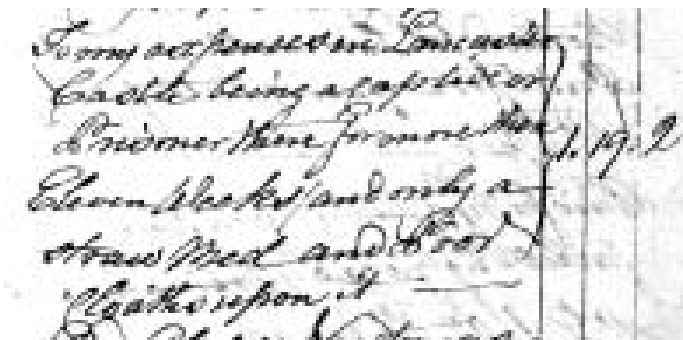 To my expenses in Lancaster
Castle being a captive or
Prisoner there for more than
1. 19. 2
Eleven Weeks and only a
straw Bed and Poor
Cloaths upon it